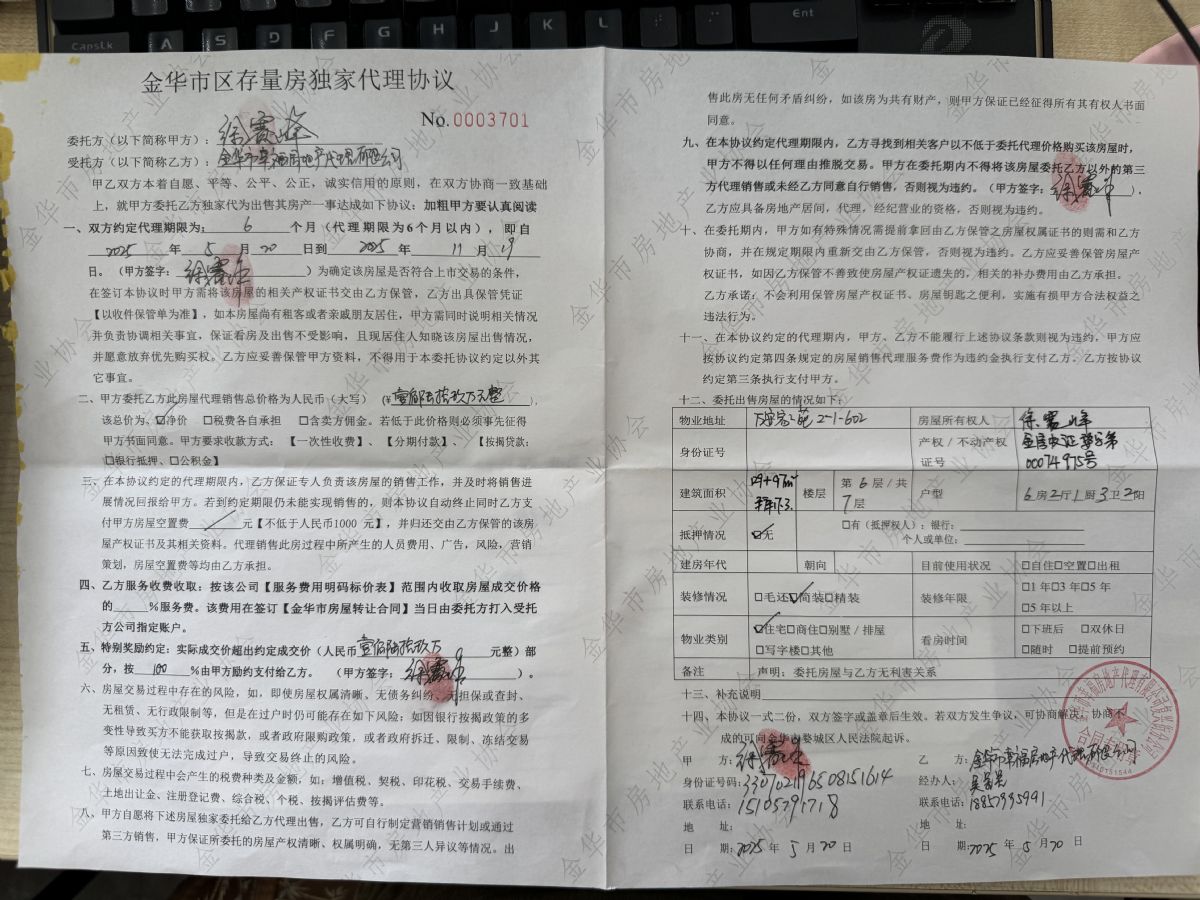 金华市区存量房独家代理协议
No.0003701
委托方（以下简称甲方）：徐震峰
受托方（以下简称乙方）：金华市幸福房地产代理有限公司
甲乙双方本着自愿、平等、公平、公正，诚实信用的原则，在双方协商一致基础
上，就甲方委托乙方独家代为出售其房产一事达成如下协议：加粗甲方要认真阅读
一、双方约定代理期限为：6个月（代理期限为6个月以内），即自
2025年5月20日到2025年11月19
日。（甲方签字：徐震峰）为确定该房屋是否符合上市交易的条件，
在签订本协议时甲方需将该房屋的相关产权证书交由乙方保管，乙方出具保管凭证
【以收件保管单为准】，如本房屋尚有租客或者亲戚朋友居住，甲方需同时说明相关情况
并负责协调相关事宜，保证看房及出售不受影响，且现居住人知晓该房屋出售情况，
并愿意放弃优先购买权。乙方应妥善保管甲方资料，不得用于本委托协议约定以外其
它事宜。
二、甲方委托乙方此房屋代理销售总价格为人民币（大写）（¥壹佰陆拾玖万元整），
该总价为、☑净价 □税费各自承担 □含卖方佣金。若低于此价格则必须事先征得
甲方书面同意。甲方要求收款方式：【一次性收费】、【分期付款】、【按揭贷款：
□银行抵押、□公积金】
三、在本协议约定的代理期限内，乙方保证专人负责该房屋的销售工作，并及时将销售进
展情况回报给甲方。若到约定期限仍未能实现销售的，则本协议自动终止同时乙方支
付甲方房屋空置费 元【不低于人民币1000 元】，并归还交由乙方保管的该房
屋产权证书及其相关资料。代理销售此房过程中所产生的人员费用、广告，风险，营销
策划，房屋空置费等均由乙方承担。
四、乙方服务收费收取：按该公司【服务费用明码标价表】范围内收取房屋成交价格
的 %服务费。该费用在签订【金华市房屋转让合同】当日由委托方打入受托
方公司指定账户。
五、特别奖励约定：实际成交价超出约定成交价（人民币壹佰陆拾玖万元整）部
分，按100%由甲方励约支付给乙方。（甲方签字：徐震峰）。
六、房屋交易过程中存在的风险，如，即使房屋权属清晰、无债务纠纷、无担保或查封、
无租赁、无行政限制等，但是在过户时仍可能存在如下风险：如因银行按揭政策的多
变性导致买方不能获取按揭款，或者政府限购政策，或者政府拆迁、限制、冻结交易
等原因致使无法完成过户，导致交易终止的风险。
七、房屋交易过程中会产生的税费种类及金额，如：增值税、契税、印花税、交易手续费、
土地出让金、注册登记费、综合税、个税、按揭评估费等。
八、甲方自愿将下述房屋独家委托给乙方代理出售，乙方可自行制定营销销售计划或通过
第三方销售，甲方保证所委托的房屋产权清晰、权属明确，无第三人异议等情况。出
售此房无任何矛盾纠纷，如该房为共有财产，则甲方保证已经征得所有其有权人书面
同意。
九、在本协议约定代理期限内，乙方寻找到相关客户以不低于委托代理价格购买该房屋时，
甲方不得以任何理由推脱交易。甲方在委托期内不得将该房屋委托乙方以外的第三
方代理销售或未经乙方同意自行销售，否则视为违约。（甲方签字：徐震峰），
乙方应具备房地产居间，代理，经纪营业的资格，否则视为违约。
十、在委托期内，甲方如有特殊情况需提前拿回由乙方保管之房屋权属证书的则需和乙方
协商，并在规定期限内重新交由乙方保管，否则视为违约。乙方应妥善保管房屋产
权证书，如因乙方保管不善致使房屋产权证遗失的，相关的补办费用由乙方承担。
乙方承诺：不会利用保管房屋产权证书、房屋钥匙之便利，实施有损甲方合法权益之
违法行为。
十一、在本协议约定的代理期内，甲方、乙方不能履行上述协议条款则视为违约，甲方应
按协议约定第四条规定的房屋销售代理服务费作为违约金执行支付乙方。乙方按协议
约定第三条执行支付甲方。
十二、委托出售房屋的情况如下：
物业地址 2-1-602 房屋所有权人 徐震峰
身份证号 产权/不动产权证号 00074975号
建筑面积 楼层 第6层/共7层 户型 6房2厅1厨3卫2阳
抵押情况 ☑无 □有（抵押权人）：银行：
个人或单位：
建房年代 朝向 目前使用状况 □自住□空置□出租
装修情况 □毛还☑简装□精装 装修年限 □1年□3年□5年
□5年以上
物业类别 ☑住宅□商住□别墅/排屋
□写字楼□其他 看房时间 □下班后 □双休日
□随时 □提前预约
备注 声明：委托房屋与乙方无利害关系
十三、补充说明
十四、本协议一式二份，双方签字或盖章后生效。若双方发生争议，可协商解决，协商不
成的可向金华市婺城区人民法院起诉。
甲 方：徐震峰 乙 方：金华市幸福房地产代理有限公司
身份证号码：330702196508151614 经办人：
联系电话：15105791718 联系电话：18857995991
地 址： 地 址：
日 期：2025年5月20日 日 期：2025年5月20日